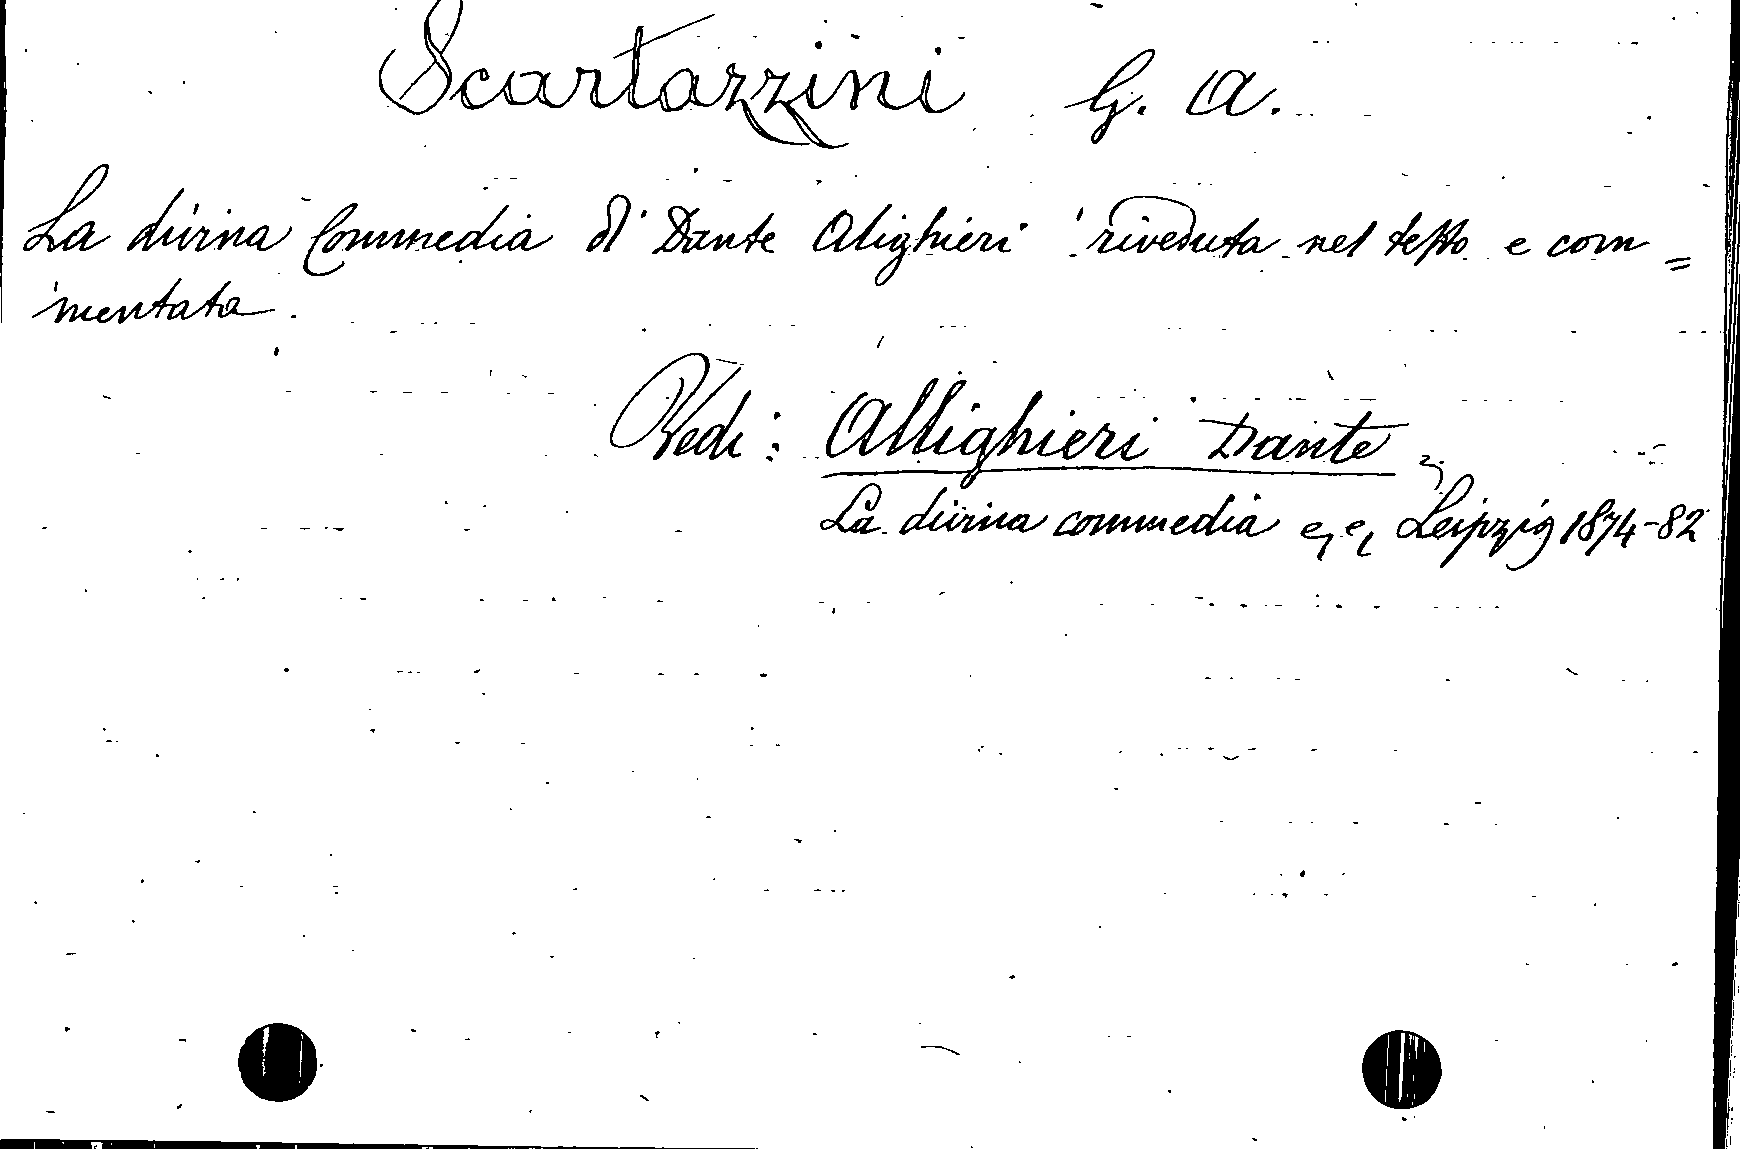 Scartazzini G. A.
La divina Commedia di Dante Alighieri riveduta nel testo e com=
mentata.
Vedi: Allighieri Dante,
La divina commedia e, e, Leipzig 1874-82